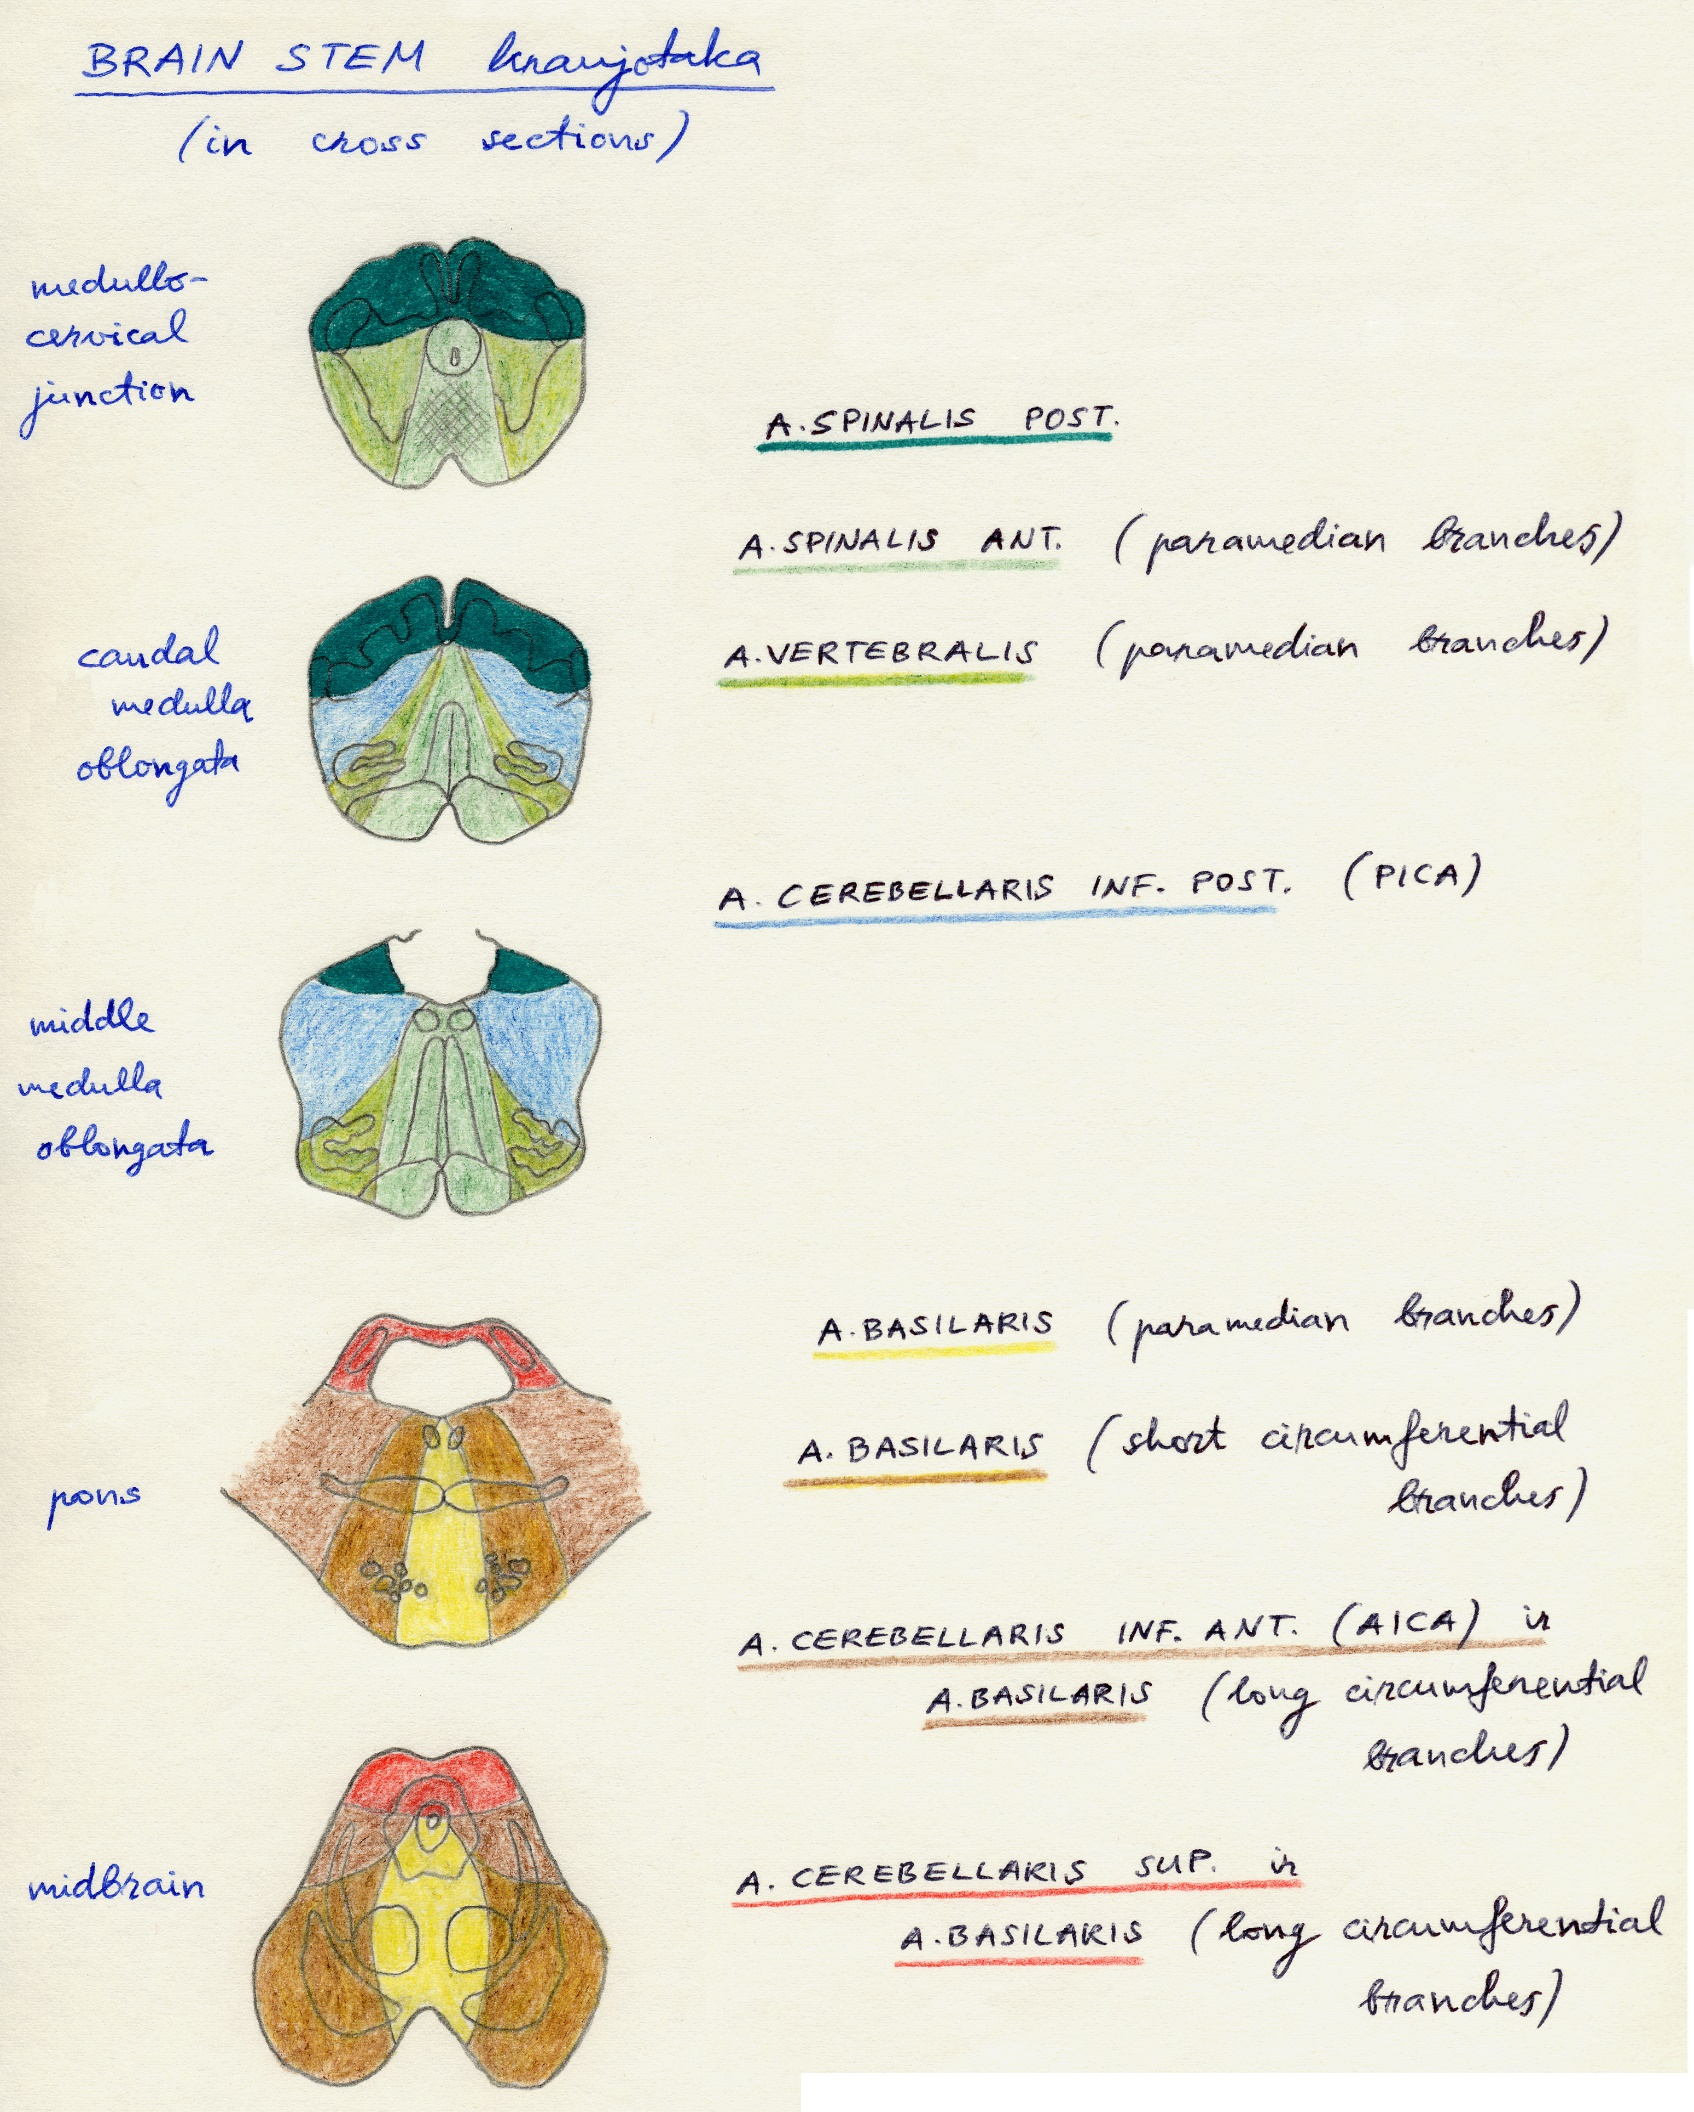 BRAIN STEM kraujotaka
(in cross sections)
medullo-
cervical
junction
A. SPINALIS POST.
A. SPINALIS ANT. (paramedian branches)
caudal
medulla
oblongata
A. VERTEBRALIS (paramedian branches)
A. CEREBELLARIS INF. POST. (PICA)
middle
medulla
oblongata
A. BASILARIS (paramedian branches)
A. BASILARIS (short circumferential
branches)
pons
A. CEREBELLARIS INF. ANT. (AICA) ir
A. BASILARIS (long circumferential
branches)
midbrain
A. CEREBELLARIS SUP. ir
A. BASILARIS (long circumferential
branches)